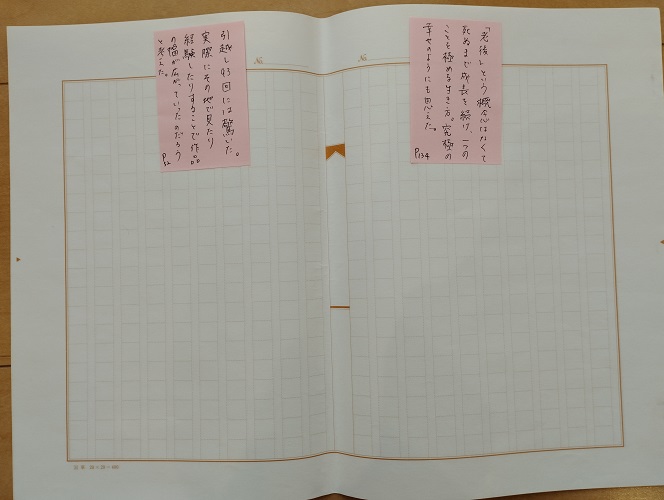 「老後」という概念はなくて
死ぬまで成長を続け、一つの
ことを極める生き方。究極の
幸せのようにも思えた。
P134
引越し93回には驚いた。
実際にその地で見たり
経験したりすることで作品
の幅が広がっていったのだろう
と考えた。
No.
No.